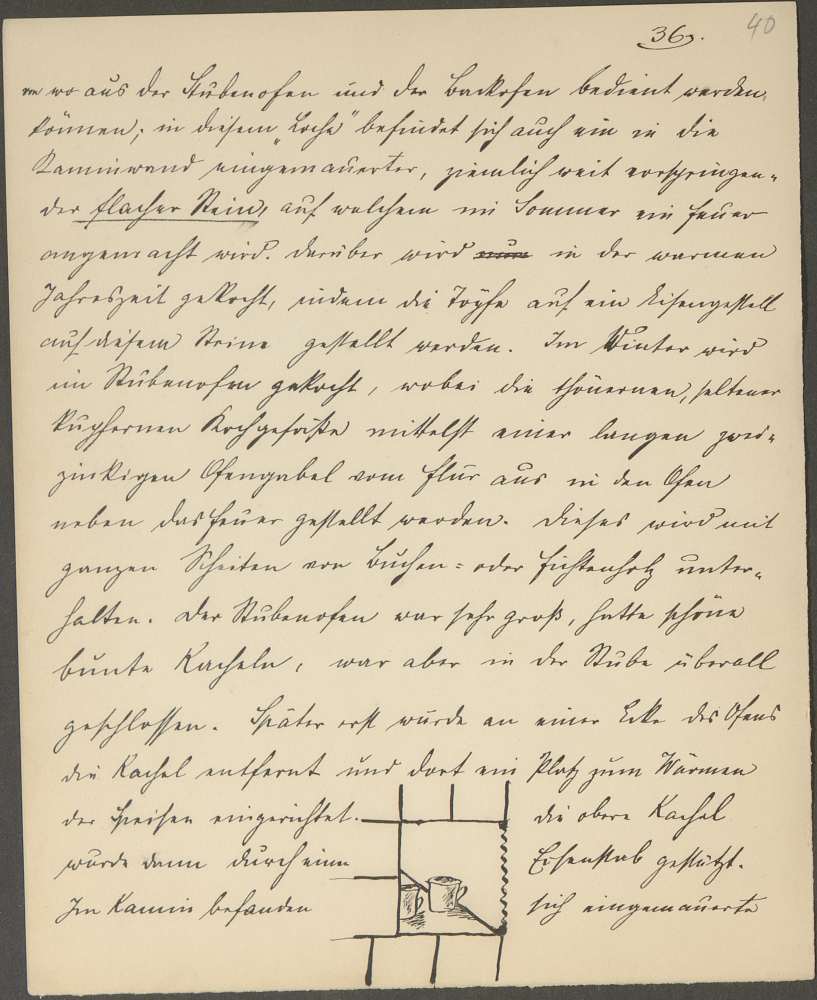 36.
40
von wo aus der Stubenofen und der Backofen bedient werden
können; in diesem „Loche" befindet sich auch ein in die
Kaminwand eingemauerter, ziemlich weit vorspringen-
der flacher Stein, auf welchem im Sommer ein Feuer
angemacht wird. Darüber wird nun in der warmen
Jahreszeit gekocht, indem die Töpfe auf ein Eisengestell
auf diesem Steine gestellt werden. Im Winter wird
im Stubenofen gekocht, wobei die thönernen, seltener
kupfernen Kochgefäße mittelst einer langen zwei-
zinkigen Ofengabel vom Flur aus in den Ofen
neben das Feuer gestellt werden. Dieses wird mit
ganzen Scheiten von Buchen- oder Fichtenholz unter-
halten. Der Stubenofen war sehr groß, hatte schöne
bunte Kacheln, war aber in der Stube überall
geschlossen. Später erst wurde an einer Ecke des Ofens
die Kachel entfernt und dort ein Platz zum Wärmen
der Speisen eingerichtet. die obere Kachel
wurde dann durch einen Eisenstab gestützt.
Im Kamin befanden sich eingemauerte